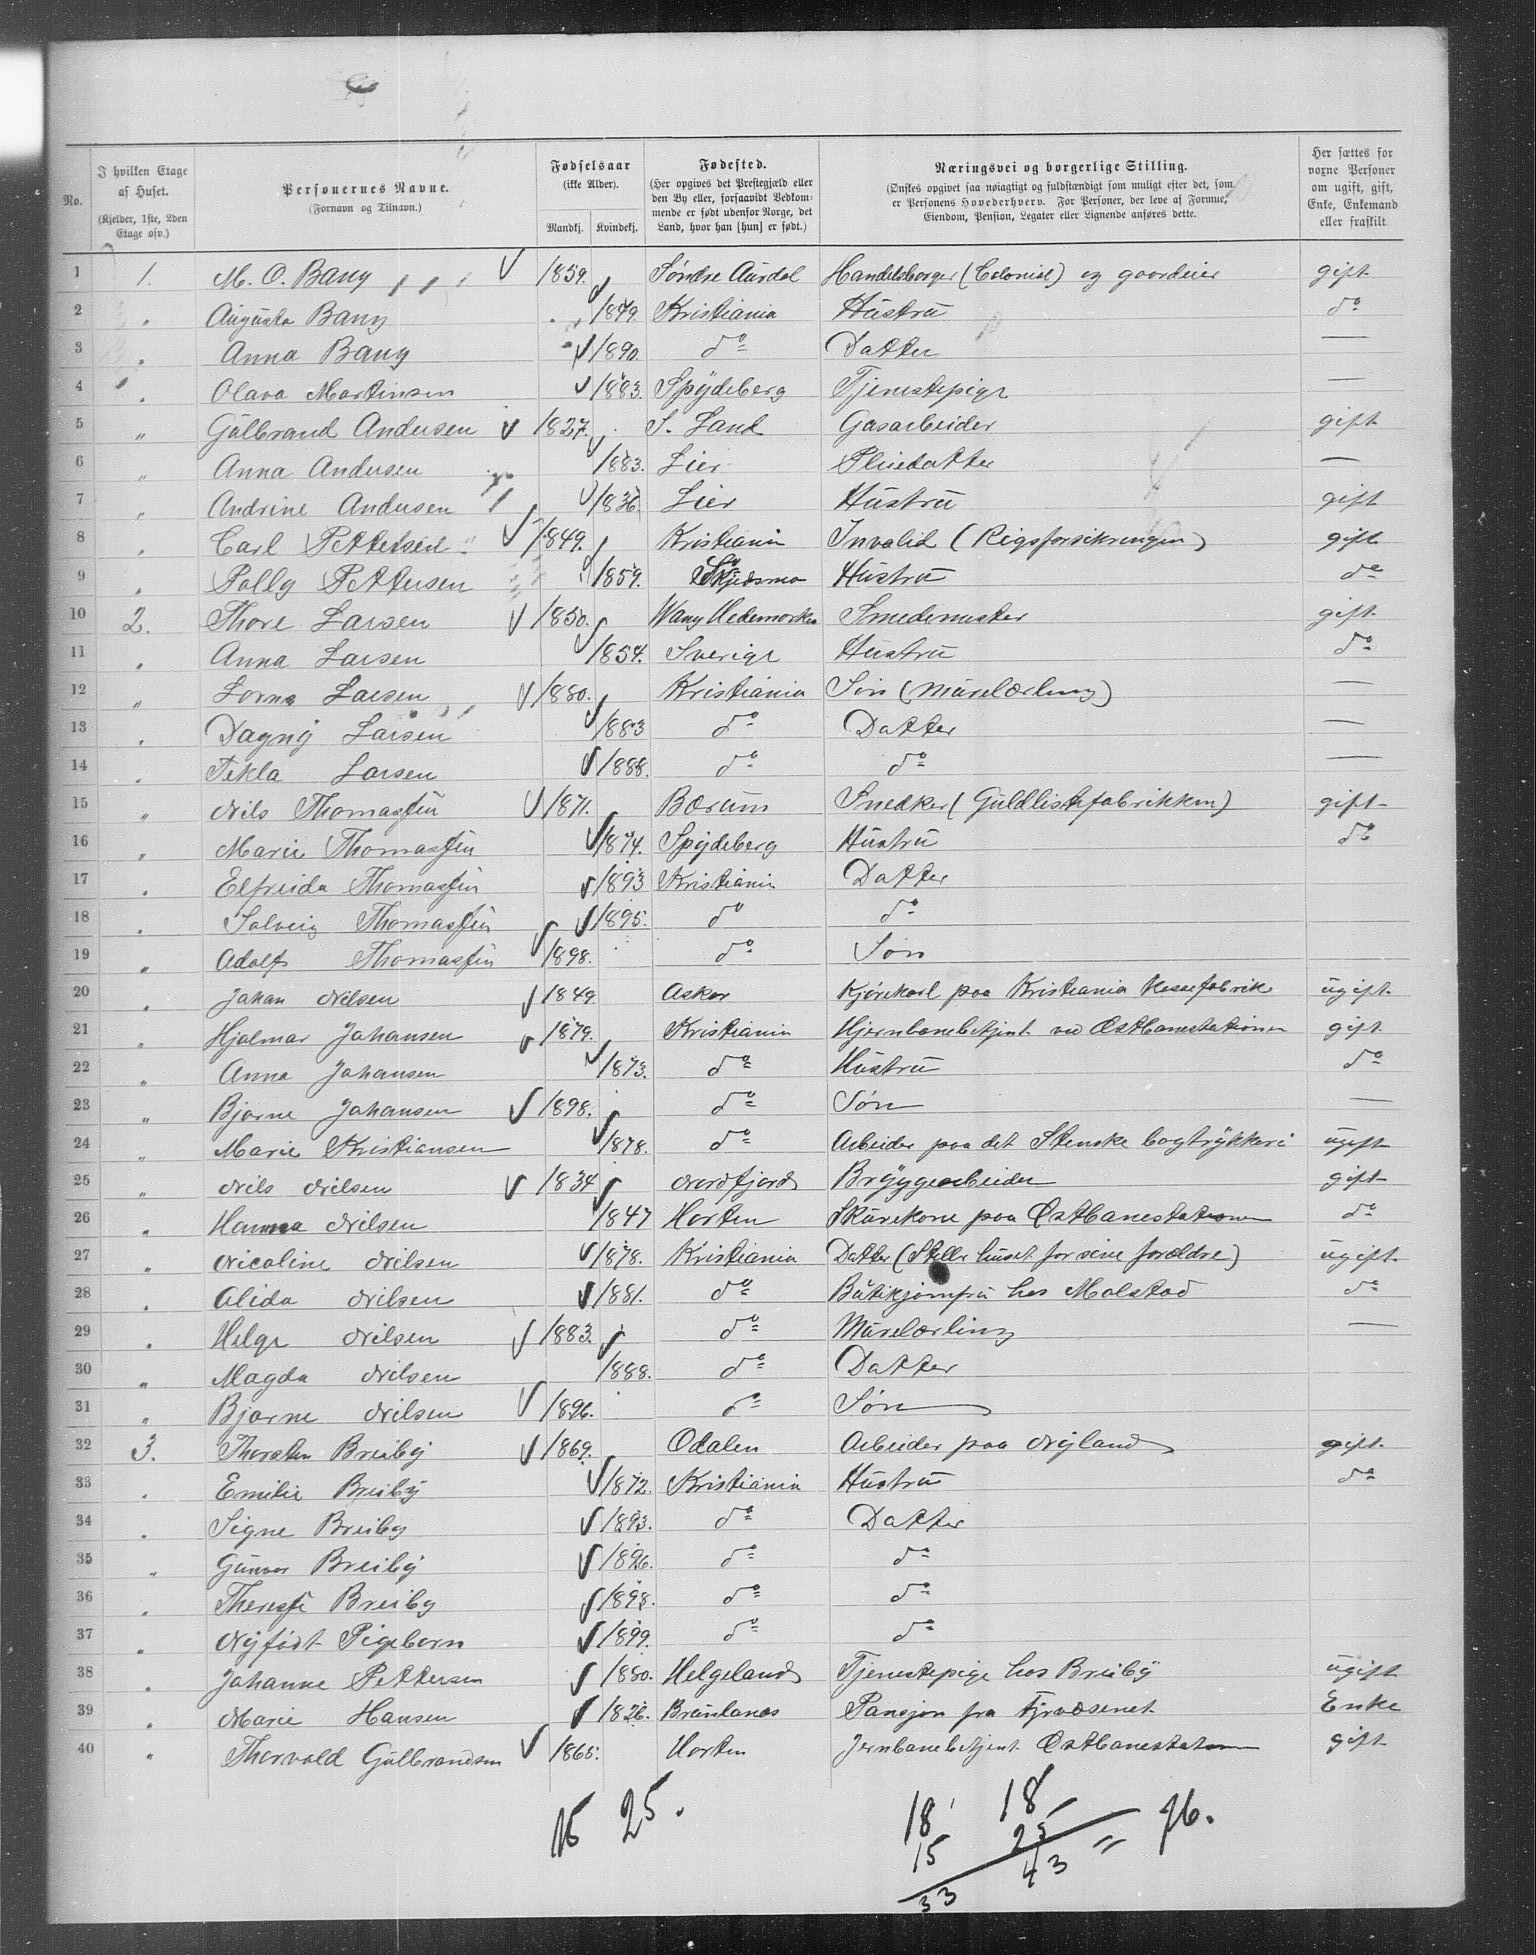 No.
I hvilken Etage af Huset.
(Kjelder, 1ste, 2den Etage osv.)
Personernes Navne.
(Fornavn og Tilnavn.)
Fødselsaar
(ikke Alder).
Mandkj.
Kvindekj.
Fødested.
(Her opgives det Prestegjæld eller den By eller, forsaavidt Vedkommende er født udenfor Norge, det Land, hvor han [hun] er født.)
Næringsvei og borgerlige Stilling.
(Ønskes opgivet saa nøiagtigt og fuldstændigt som muligt efter det, som er Personens Hovederhverv. For Personer, der leve af Formue, Eiendom, Pension, Legater eller Lignende anføres dette.
Her sættes for voxne Personer om ugift, gift, Enke, Enkemand eller fraskilt.
1 1. M. O. Bang 1859. Søndre Aurdal Handelsborger (Colonial) og gaardeier gift
2 " Augusta Bang 1849. Kristiania Hustru do
3 " Anna Bang 1890. do Datter —
4 " Olava Martinsen 1883. Spydeberg Tjenestepige —
5 " Gulbrand Andersen 1827. S. Land Gasarbeider gift
6 " Anna Andersen 1883. Lier Pleiedatter —
7 " Andrine Andersen 1836. Lier Hustru gift
8 " Carl Pettersen 1849. Kristiania Invalid (Rigsforsikringen) gift
9 " Polly Pettersen 1859. Skjedsmo Hustru do
10 2. Thore Larsen 1850. Wang Hedemarken Smedemester gift
11 " Anna Larsen 1854. Sverige Hustru do
12 " Larsen 1880. Kristiania Søn (Murelærling) —
13 " Dagny Larsen 1883 do Datter —
14 " Tekla Larsen 1888. do do —
15 " Nils Thomassen 1871. Bærum Snedker (Guldlistefabrikken) gift
16 " Marie Thomassen 1874. Spydeberg Hustru do
17 " Elfrida Thomassen 1893 Kristiania Datter
18 " Solveig Thomassen 1895. do do
19 " Adolf Thomassen 1898. do Søn
20 " Johan Nilsen 1849. Asker Kjørekarl paa Kristiania Hesjefabrik ugift
21 " Hjalmar Johansen 1879. Kristiania Hjernbanebetjent ved Østbanestationen gift
22 " Anna Johansen 1873. do Hustru do
23 " Bjarne Johansen 1898. do Søn —
24 " Marie Kristiansen 1878. do Arbeider paa det Stenske bogtrykkeri ugift
25 " Nils Nilsen 1834 Nordfjord Bryggearbeider gift
26 " Hanna Nilsen 1847 Horten Skurekone paa Østbanestationen do
27 " Nicoline Nilsen 1878. Kristiania Datter (Steller huset for sine forældre) ugift
28 " Alida Nilsen 1881. do Butikjomfru hos Molstad do
29 " Helge Nilsen 1883. do Murelærling —
30 " Magda Nilsen 1888. do Datter
31 " Bjarne Nilsen 1896. do Søn
32 3. Thorsten Breiby 1869. Odalen Arbeider paa Nyland gift
33 " Emilie Breiby 1872. Kristiania Hustru do
34 " Signe Breiby 1893. do Datter
35 " Gunvor Breiby 1896. do do
36 " Therese Breiby 1898. do do
37 " Nyfødt Pigebarn 1899. do do
38 " Johanne Pettersen 1880. Helgeland Tjenestepige hos Breiby ugift
39 " Marie Hansen 1826. Brunlanæs Pansjon fra Fyrvæsenet Enke
40 " Thorvald Gulbrandsen 1865. Horten Jernbanebetjent Østbanestation gift
15 25.
18 18
15 25
33 43 = 76.